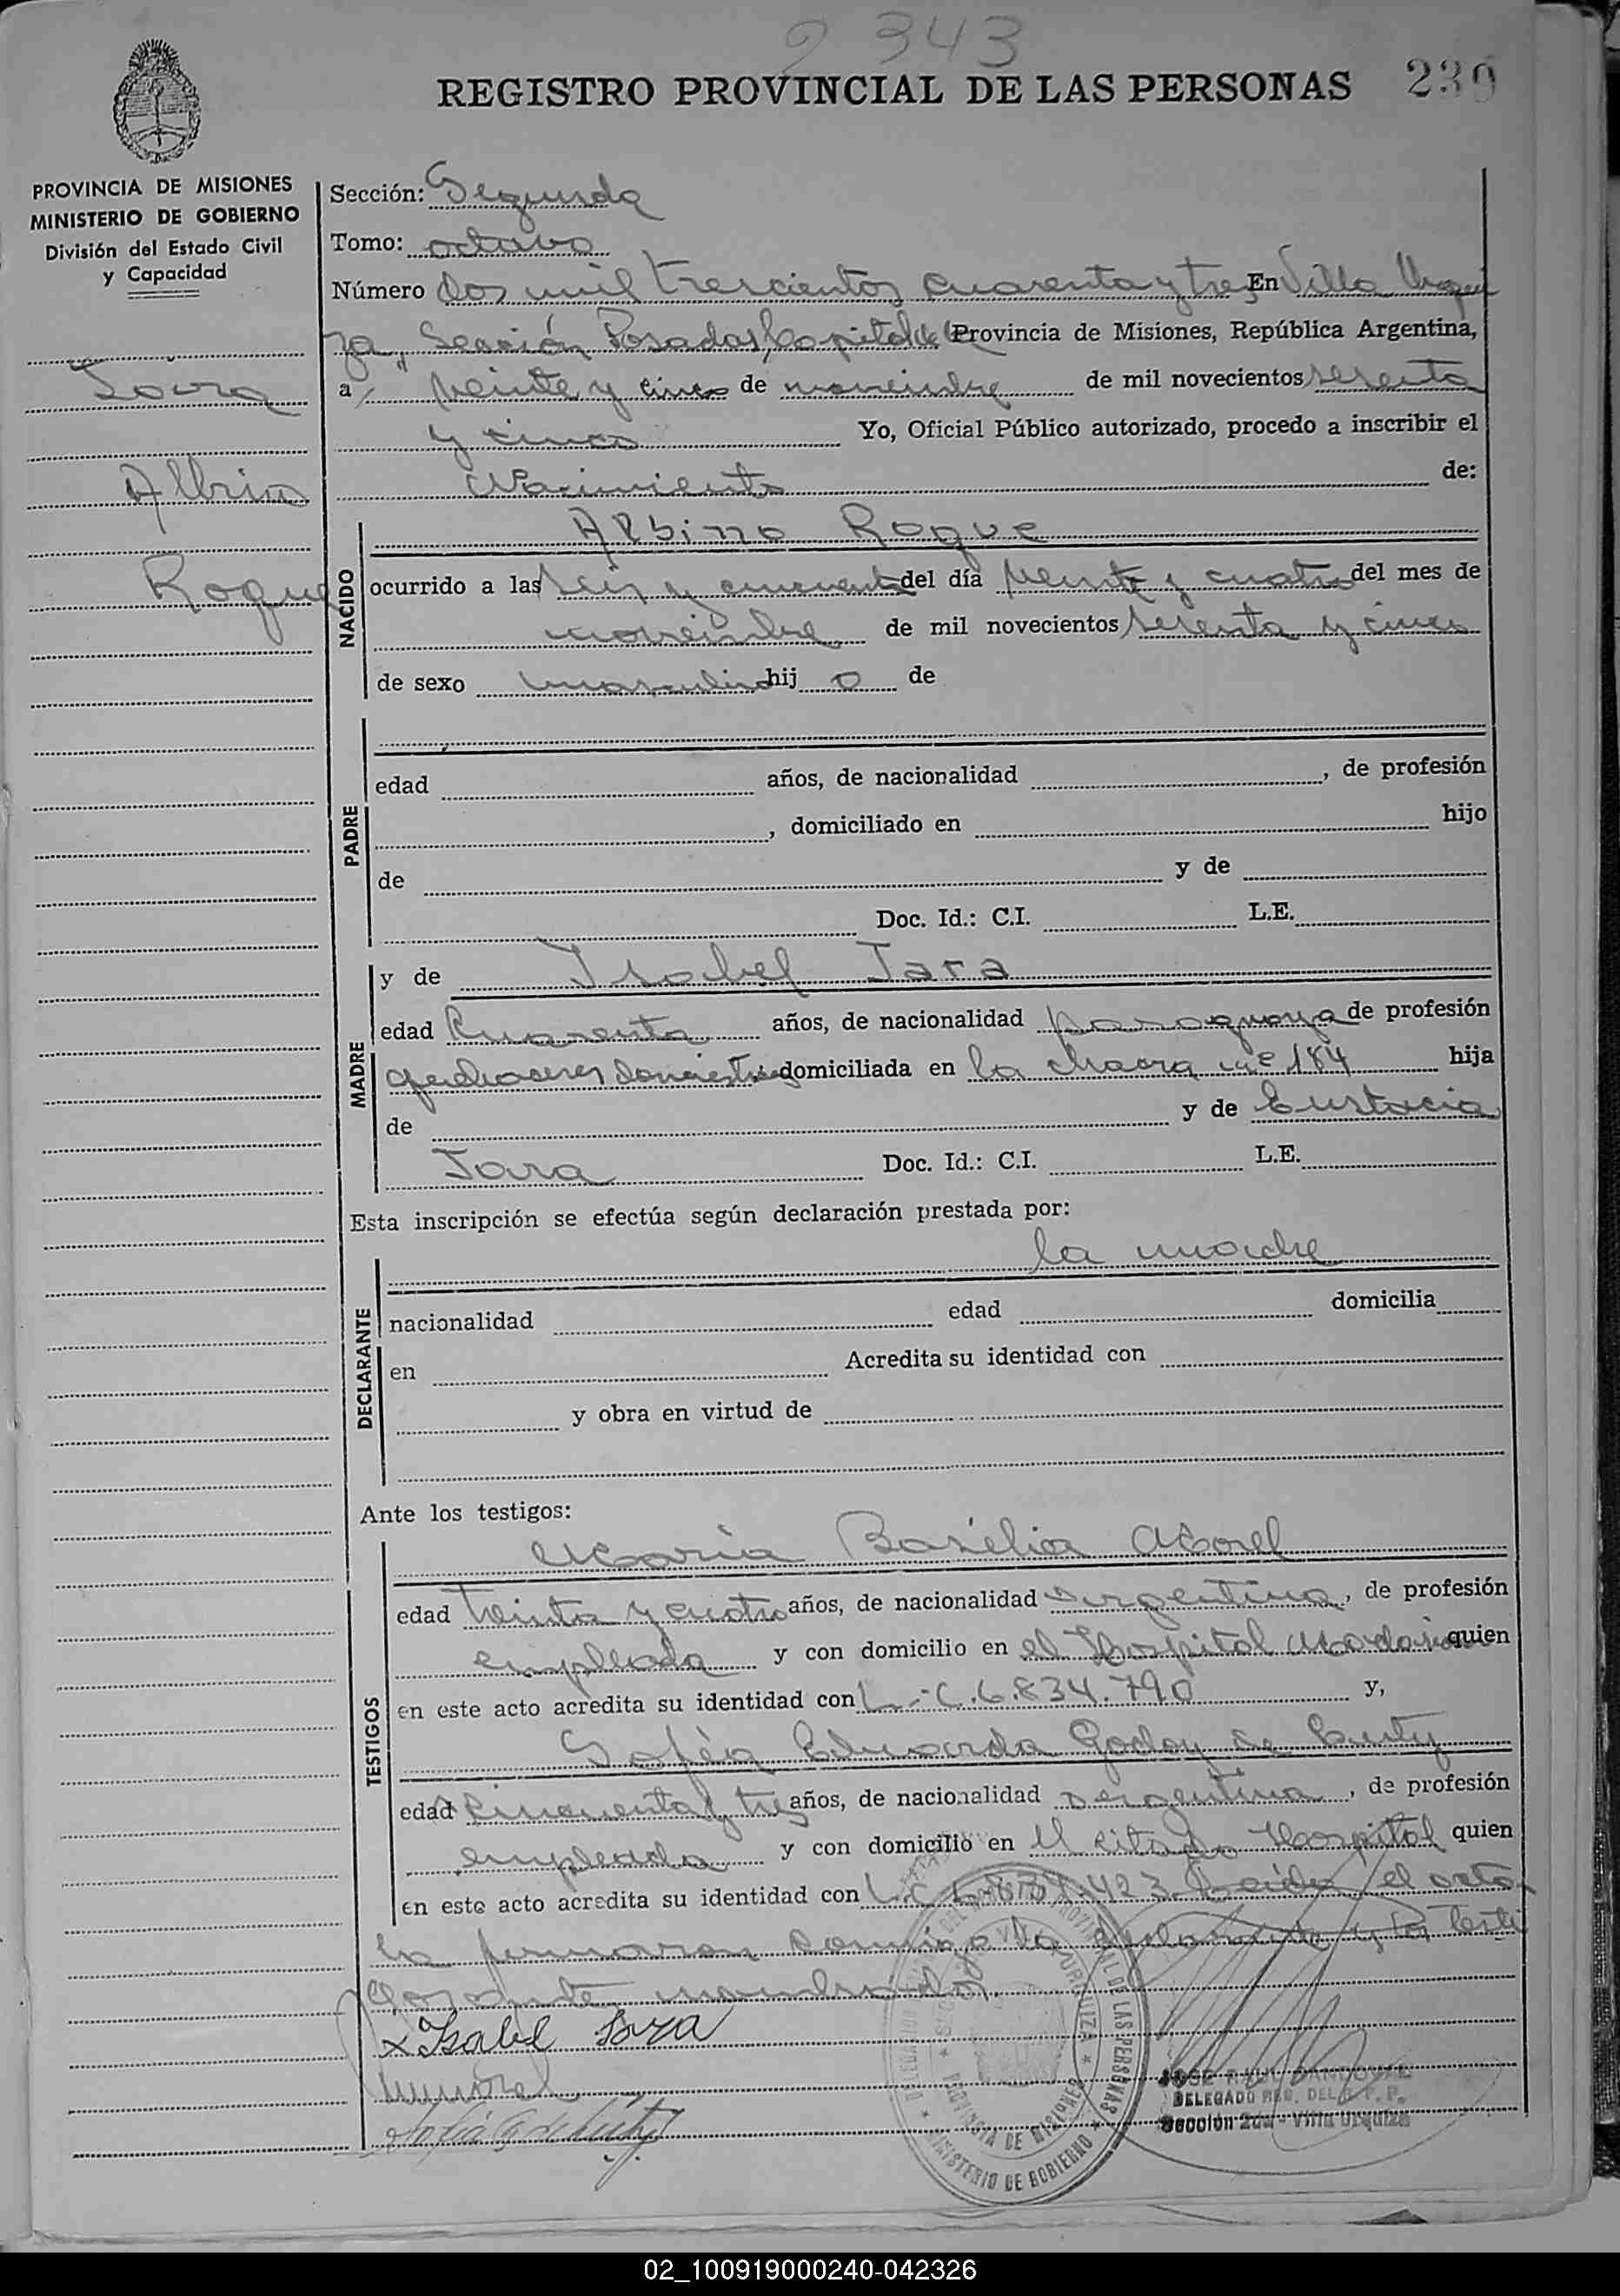 2 343
REGISTRO PROVINCIAL DE LAS PERSONAS 239
PROVINCIA DE MISIONES
MINISTERIO DE GOBIERNO
División del Estado Civil
y Capacidad
Jara
Albino
Roque
Sección: Segunda
Tomo: octavo
Número dos mil trescientos cuarenta y tres En Villa Urqui
za, Sección Posadas, Capital de la Provincia de Misiones, República Argentina,
a veinte y cinco de noviembre de mil novecientos sesenta
y cinco Yo, Oficial Público autorizado, procedo a inscribir el
Nacimiento de:
NACIDO
Albino Roque
ocurrido a las seis y cincuenta del día veinte y cuatro del mes de
noviembre de mil novecientos sesenta y cinco
de sexo masculino hij o de
PADRE
edad años, de nacionalidad , de profesión
, domiciliado en hijo
de y de
Doc. Id.: C.I. L.E.
MADRE
y de Isabel Jara
edad Cuarenta años, de nacionalidad paraguaya de profesión
quehaceres domésticos domiciliada en la chacra nº 184 hija
de y de Eustacia
Jara Doc. Id.: C.I. L.E.
Esta inscripción se efectúa según declaración prestada por:
DECLARANTE
la madre
nacionalidad edad domicilia
en Acredita su identidad con
y obra en virtud de
Ante los testigos:
TESTIGOS
María Basilia
edad treinta y cuatro años, de nacionalidad argentina, de profesión
empleada y con domicilio en el Hospital Madariaga quien
en este acto acredita su identidad con L.C. 6.834.790 y,
Sofía Eduarda Godoy de
edad cincuenta y tres años, de nacionalidad argentina, de profesión
empleada y con domicilio en el citado Hospital quien
en este acto acredita su identidad con L.C. Leída el acta
la firmaron conmigo la declarante y los testi
gos nombrados.
x Isabel Jara
JOSE RAUL SANDOVAL
DELEGADO REG. DEL R. P. P.
Sección 2da - Villa Urquiza
PROVINCIAL DE LAS PERSONAS
VILLA URQUIZA
PROVINCIA DE MISIONES
MINISTERIO DE GOBIERNO
02_100919000240-042326